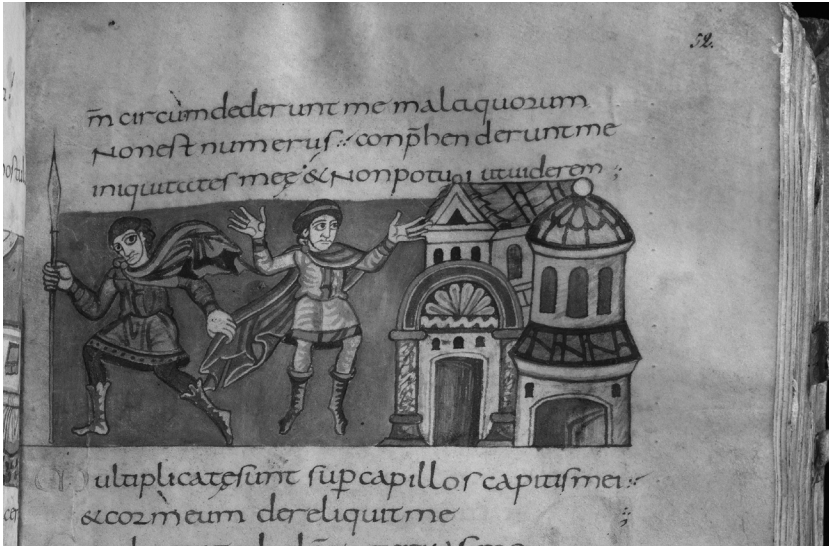 52.
m̄ circumdederunt me mala quorum
Non est numerus conp̄henderunt me
iniquitates meę & Non potui ut uiderem
ultiplicatę sunt sup capillos capitis mei
& cor meum dereliquit me